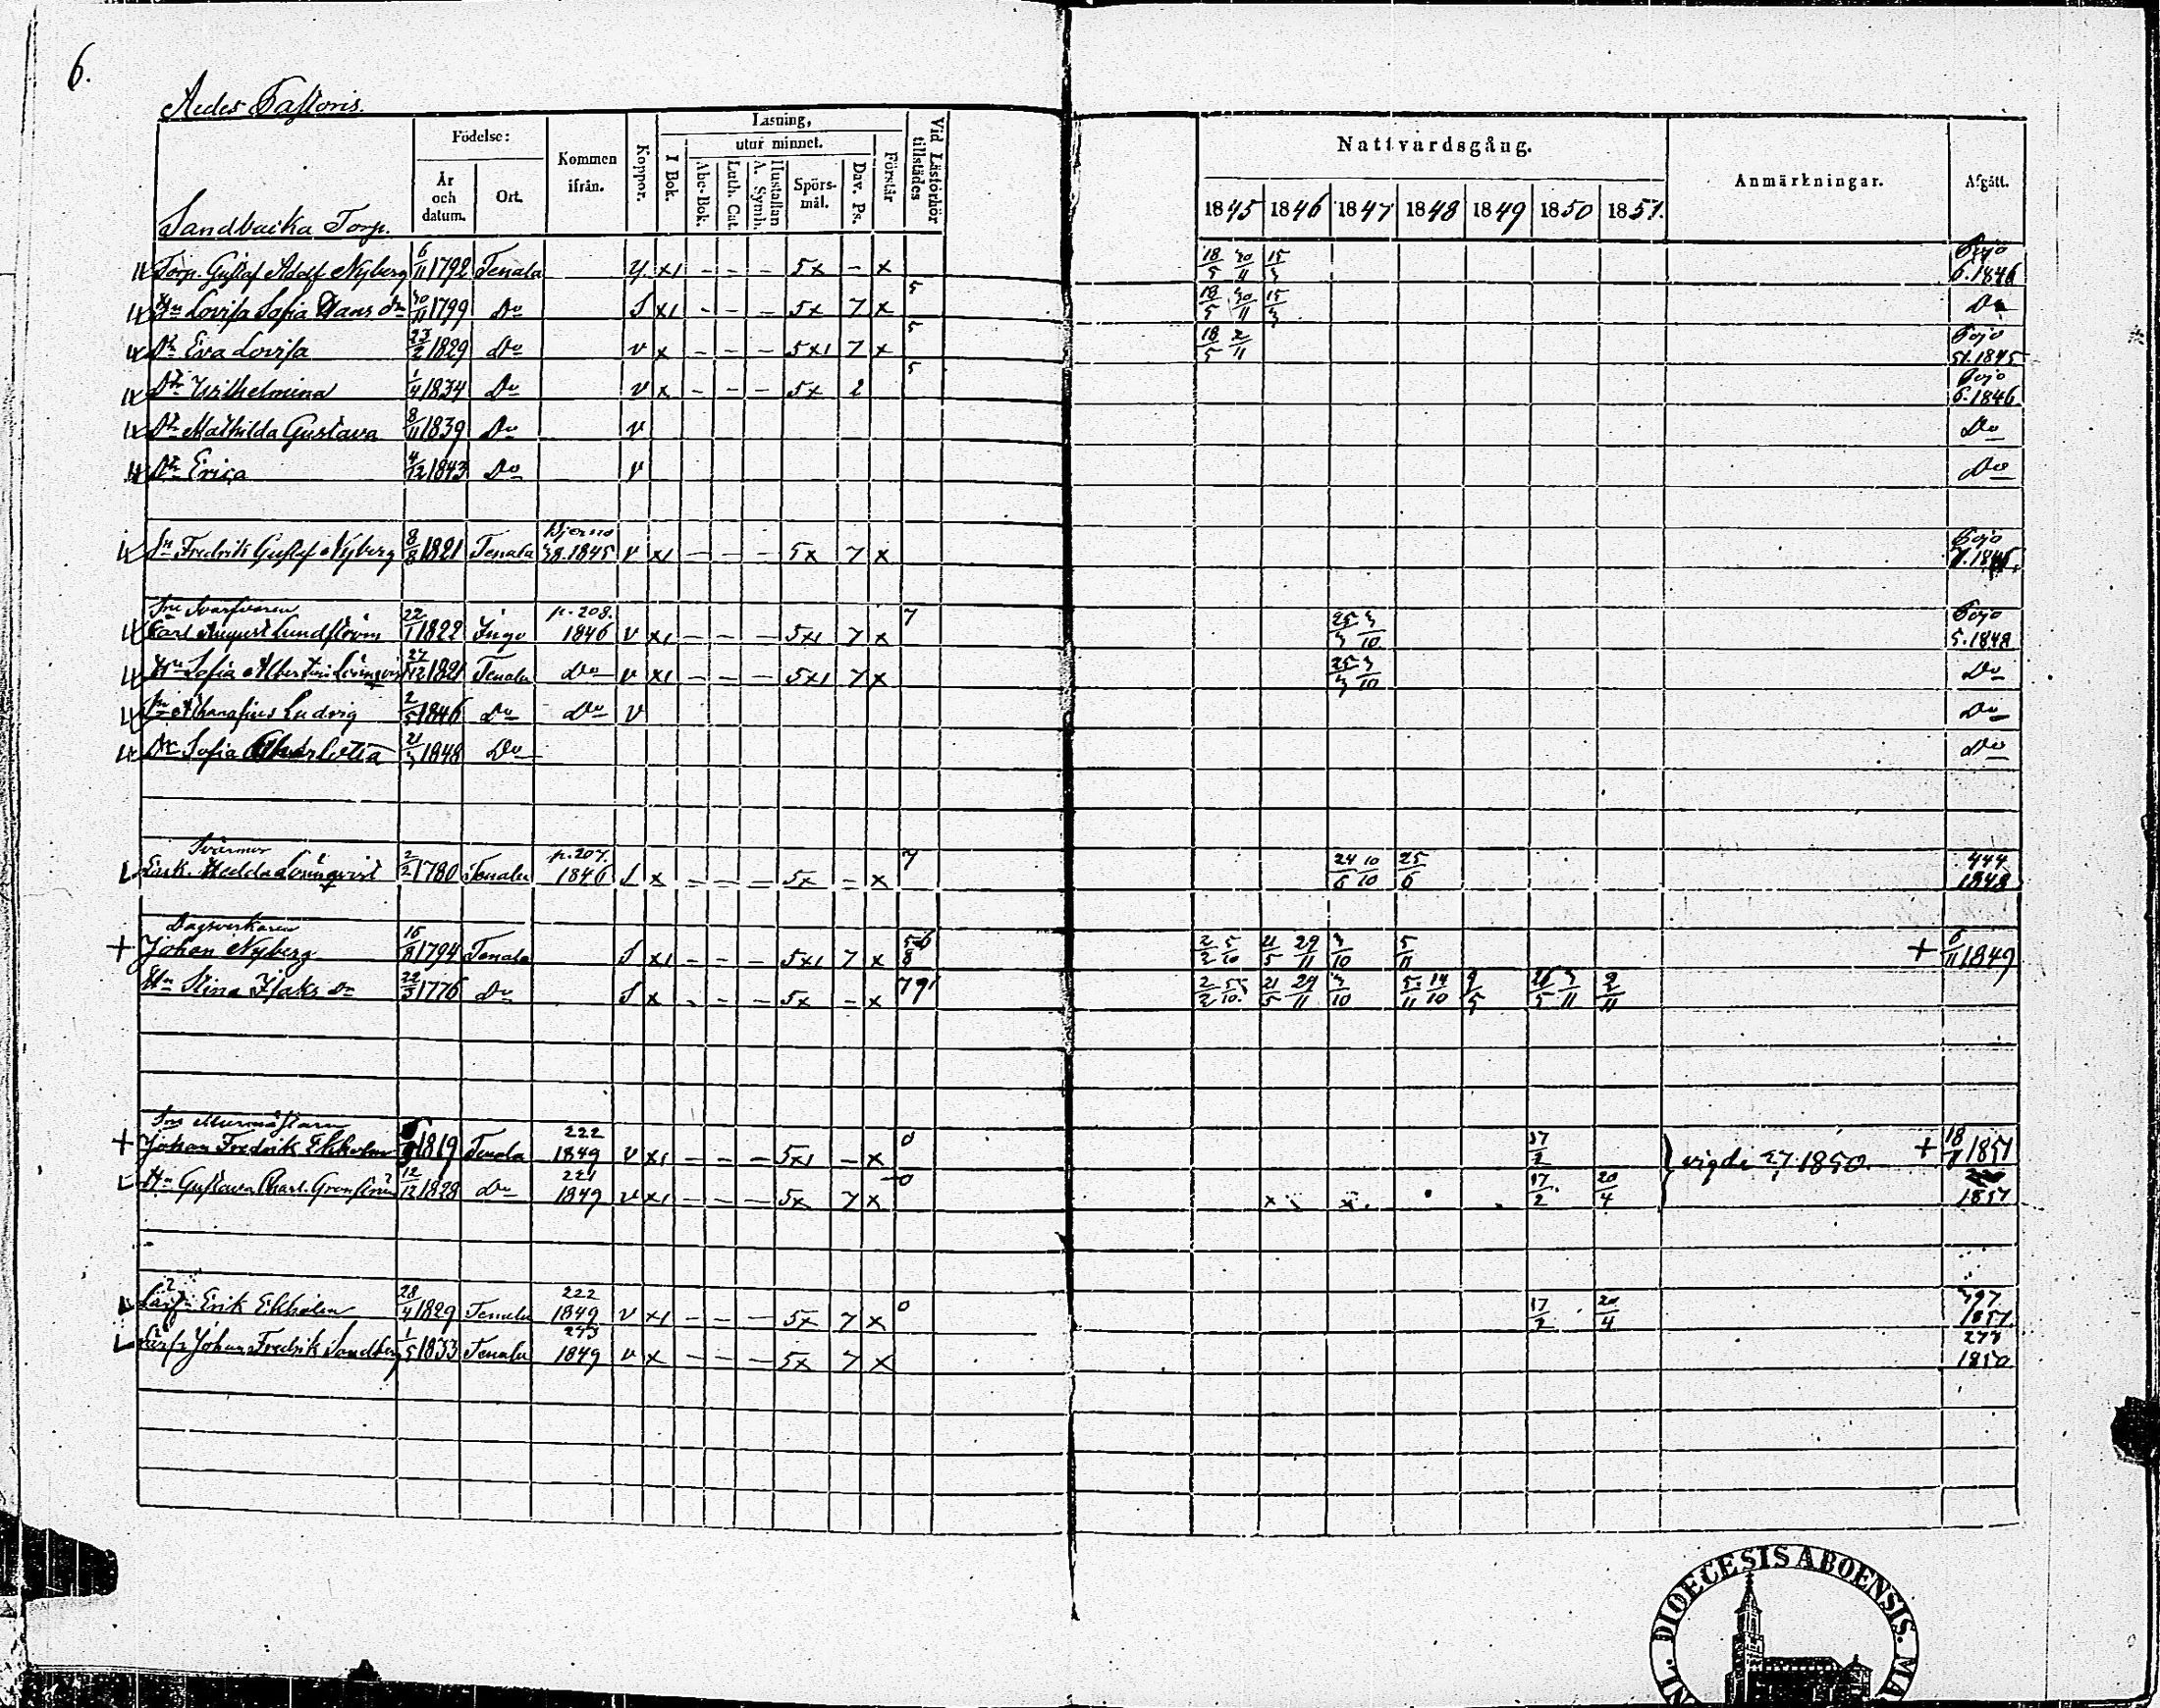 6.
Aedes Pastoris.
Födelse: Kommen ifrån. Koppor. I Bok. Läsning, utur minnet. Förstår Vid Läsförhör tillstädes Nattvardsgång. Anmärkningar. Afgått.
År och datum. Ort. Abc-Bok. Luth. Cat. Hustaflan A. Symb. Spörsmål. Dav. Ps. 1845 1846 1847 1848 1849 1850 1851.
Sandbacka Torp.
Torp. Gustaf Adolf Nyberg 6/11 1792 Tenala y x1 - - - 5x - x 18/5 30/11 15/3 Pojo 6.1846
Hu Lovisa Sofia Hans dr 30/11 1799 Do S x1 - - - 5x 7 x 5 18/5 30/11 15/3 Do
Dr Eva Lovisa 23/2 1829 Do v x - - - 5x1 7 x 5 18/5 2/11 Pojo 51.1845
Dr Wilhelmina 1/4 1834 Do v x - - - 5x 2 5 Pojo 6.1846
Dr Mathilda Gustava 8/11 1839 Do v Do
Dr Erica 4/12 1843 Do v Do
Sn Fredrik Gustaf Nyberg 8/8 1821 Tenala Kjerno 38.1845 v x1 - - - 5x 7 x Pojo
Inh Svarfvaren
Carl August Lundström 22/1 1822 Ingo p. 208. 1846 v x1 - - - 5x1 7 x 7 25/3 3/10 Pojo 5.1848
Hu Sofia Albertina Lönnqvist 27/12 1821 Tenala Do v x1 - - - 5x1 7 x 25/3 3/10 Do
Sn Athanasius Ludvig 2/5 1846 Do Do v Do
Dr Sofia Charlotta 21/3 1848 Do Do
Svärmor
Enk. Hedda Lönnqvist 2/2 1780 Tenala p. 207. 1846 S x - - - 5x - x 7 24/6 10/10 25/6 444 1848
Dagsverkaren
Johan Nyberg 15/8 1794 Tenala S x1 - - - 5x1 7 x 56 8 2/2 5/10 21/5 29/11 3/10 5/11 + 6/11 1849
Hu Stina Isaks dr 22/3 1776 Do S x - - - 5x - x 79 2/2 5/10 21/5 29/11 3/10 5/11 14/10 9/5 26/5 3/11 2/11
Inh Murmästaren
+ Johan Fredrik Ekholm 1819 Tenala 222 1849 v x1 - - - 5x1 - x 0 17/2 vigde 27.1850. + 18/8 1851
Hu Gustava Charl. Grönström 12/12 1828 Do 221 1849 v x1 - - - 5x 7 x 0 x x 17/2 20/4 1851
Lärl. Erik Ekholm 28/4 1829 Tenala 222 1849 v x1 - - - 5x 7 x 0 17/2 20/4 397 1851
Lärl. Johan Fredrik Sandberg 1/5 1833 Tenala 273 1849 v x - - - 5x 7 x 273 1850
DIOECESIS ABOENSIS. MA